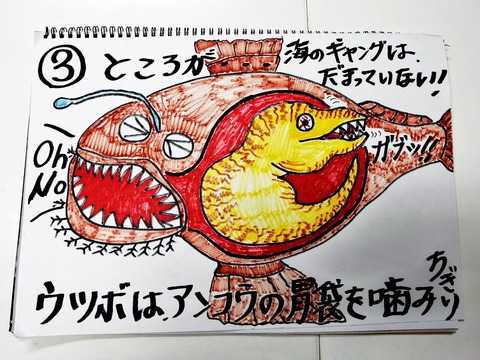 ③ ところが
海のギャングは、
だまっていない!
Oh!
No
ガブッ!!
ウツボは、アンコウの胃袋を噛みちぎり